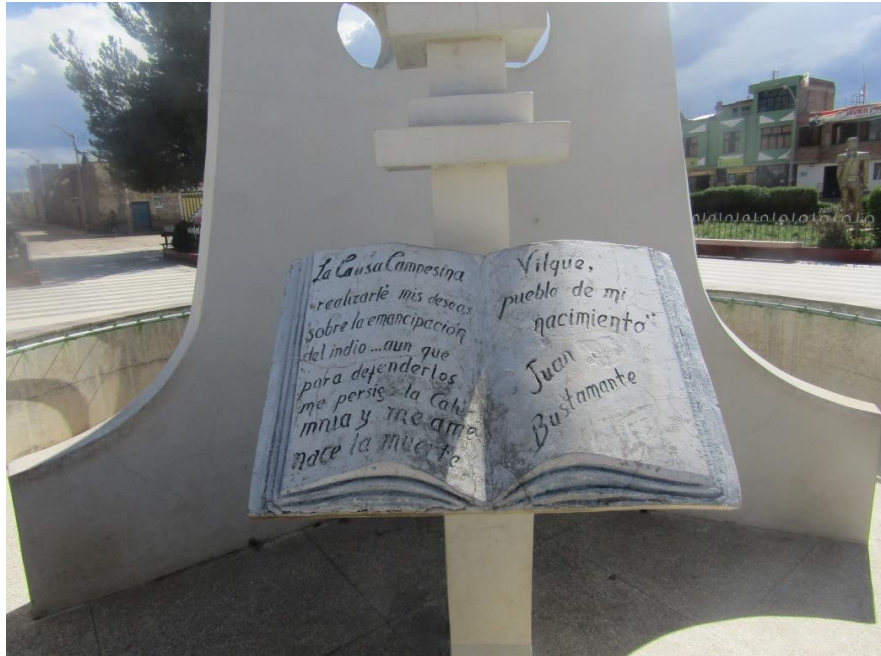 La Causa Campesina
"realizarlé mis deseos
sobre la emancipación
del indio...aun que
para defenderlos
me persiga la Calu
mnia y me ame
nace la muerte
Vilque,
pueblo de mi
nacimiento"
Juan
Bustamante